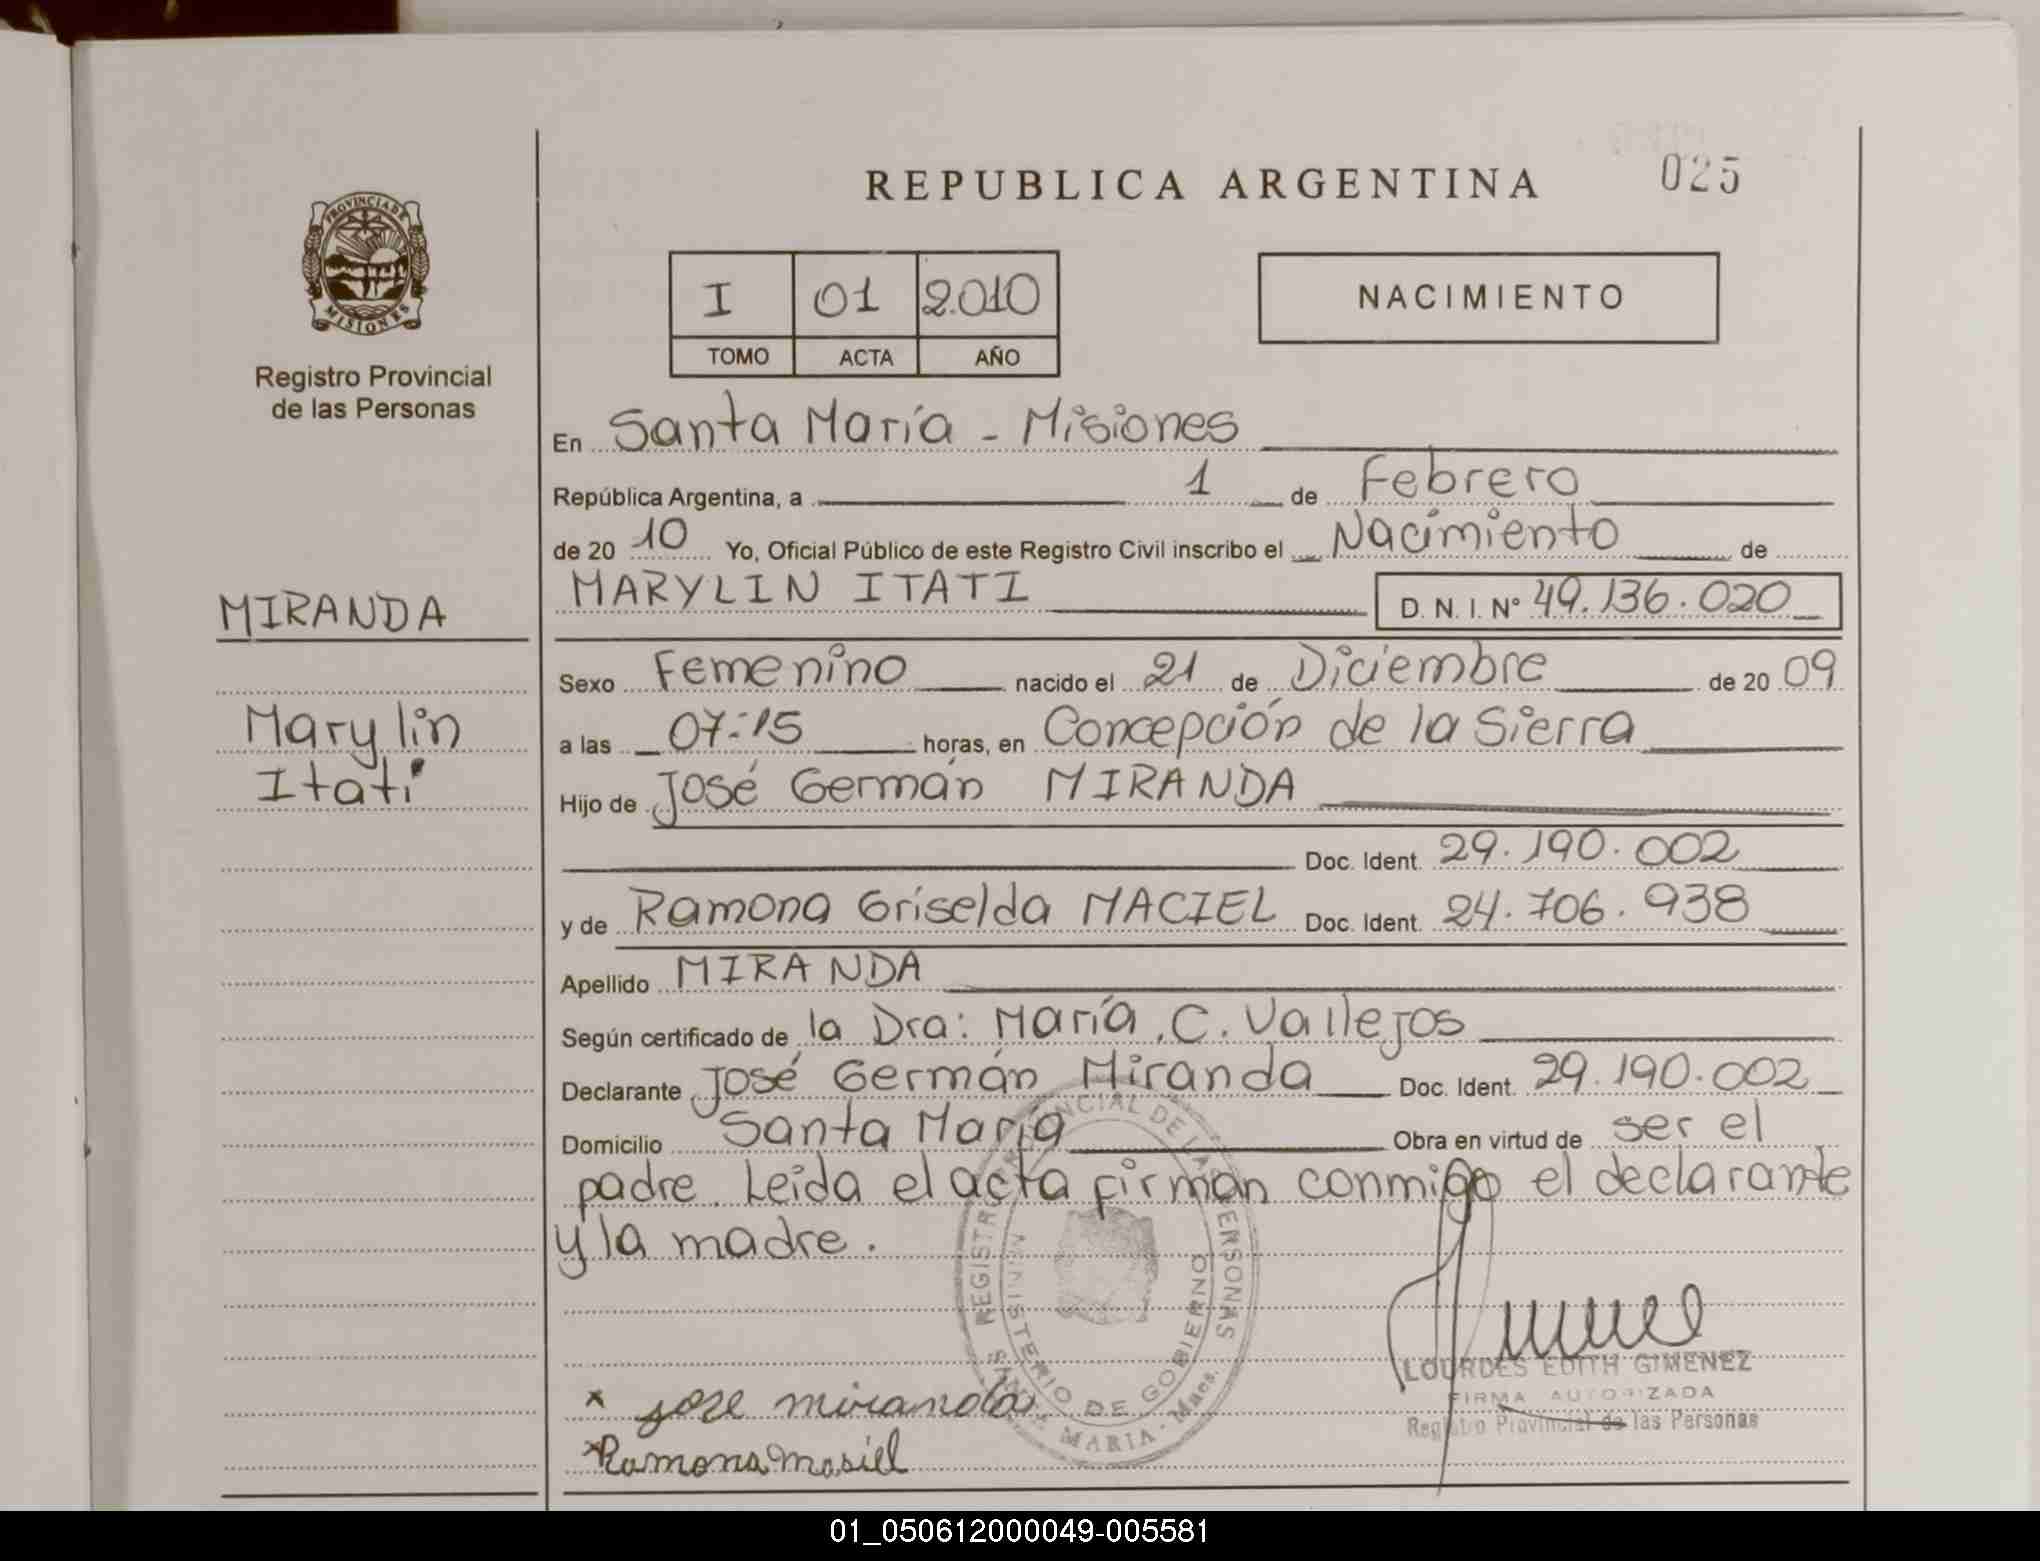 REPUBLICA ARGENTINA
025
PROVINCIA DE
MISIONES
Registro Provincial
de las Personas
I 01 2.010
TOMO ACTA AÑO
NACIMIENTO
En Santa María - Misiones
República Argentina, a 1 de Febrero
de 20 10 Yo, Oficial Público de este Registro Civil inscribo el Nacimiento de
MARYLIN ITATI D. N. I. Nº 49.136.020
MIRANDA
Marylin
Itatí
Sexo Femenino nacido el 21 de Diciembre de 20 09
a las 07:15 horas, en Concepción de la Sierra
Hijo de José Germán MIRANDA
Doc. Ident. 29.190.002
y de Ramona Griselda MACIEL Doc. Ident. 24.706.938
Apellido MIRANDA
Según certificado de la Dra: María C. Vallejos
Declarante José Germán Miranda Doc. Ident. 29.190.002
Domicilio Santa María Obra en virtud de ser el
padre. Leida el acta firman conmigo el declarante
y la madre.
REGISTRO PROVINCIAL DE LAS PERSONAS
MINISTERIO DE GOBIERNO
SANTA MARIA - Mnes.
LOURDES EDITH GIMENEZ
FIRMA AUTORIZADA
Registro Provincial de las Personas
x jose miranda
x Ramona Masiel
01_050612000049-005581